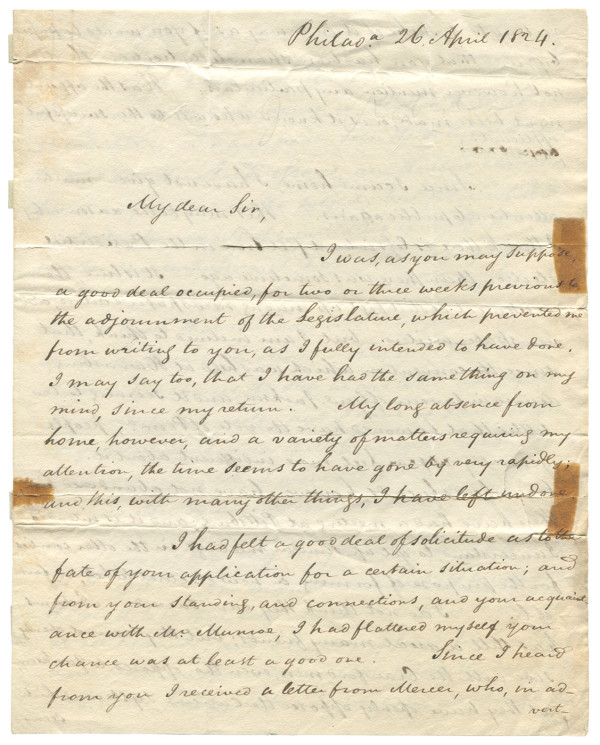 Philada. 26 April 1824.
My dear Sir,
I was, as you may suppose,
a good deal occupied, for two or three weeks previous to
the adjournment of the Legislature, which prevented me
from writing to you, as I fully intended to have done.
I may say too, that I have had the same thing on my
mind, since my return. My long absence from
home, however, and a variety of matters requiring my
attention, the time seems to have gone by very rapidly;
and this, with many other things, I have left undone
I had felt a good deal of solicitude as to the
fate of your application for a certain situation; and
from your standing, and connections, and your acquaint
ance with Mr. Munroe, I had flattered myself your
chance was at least a good one. Since I heard
from you I received a letter from Mercer, who, in ad-
vert-